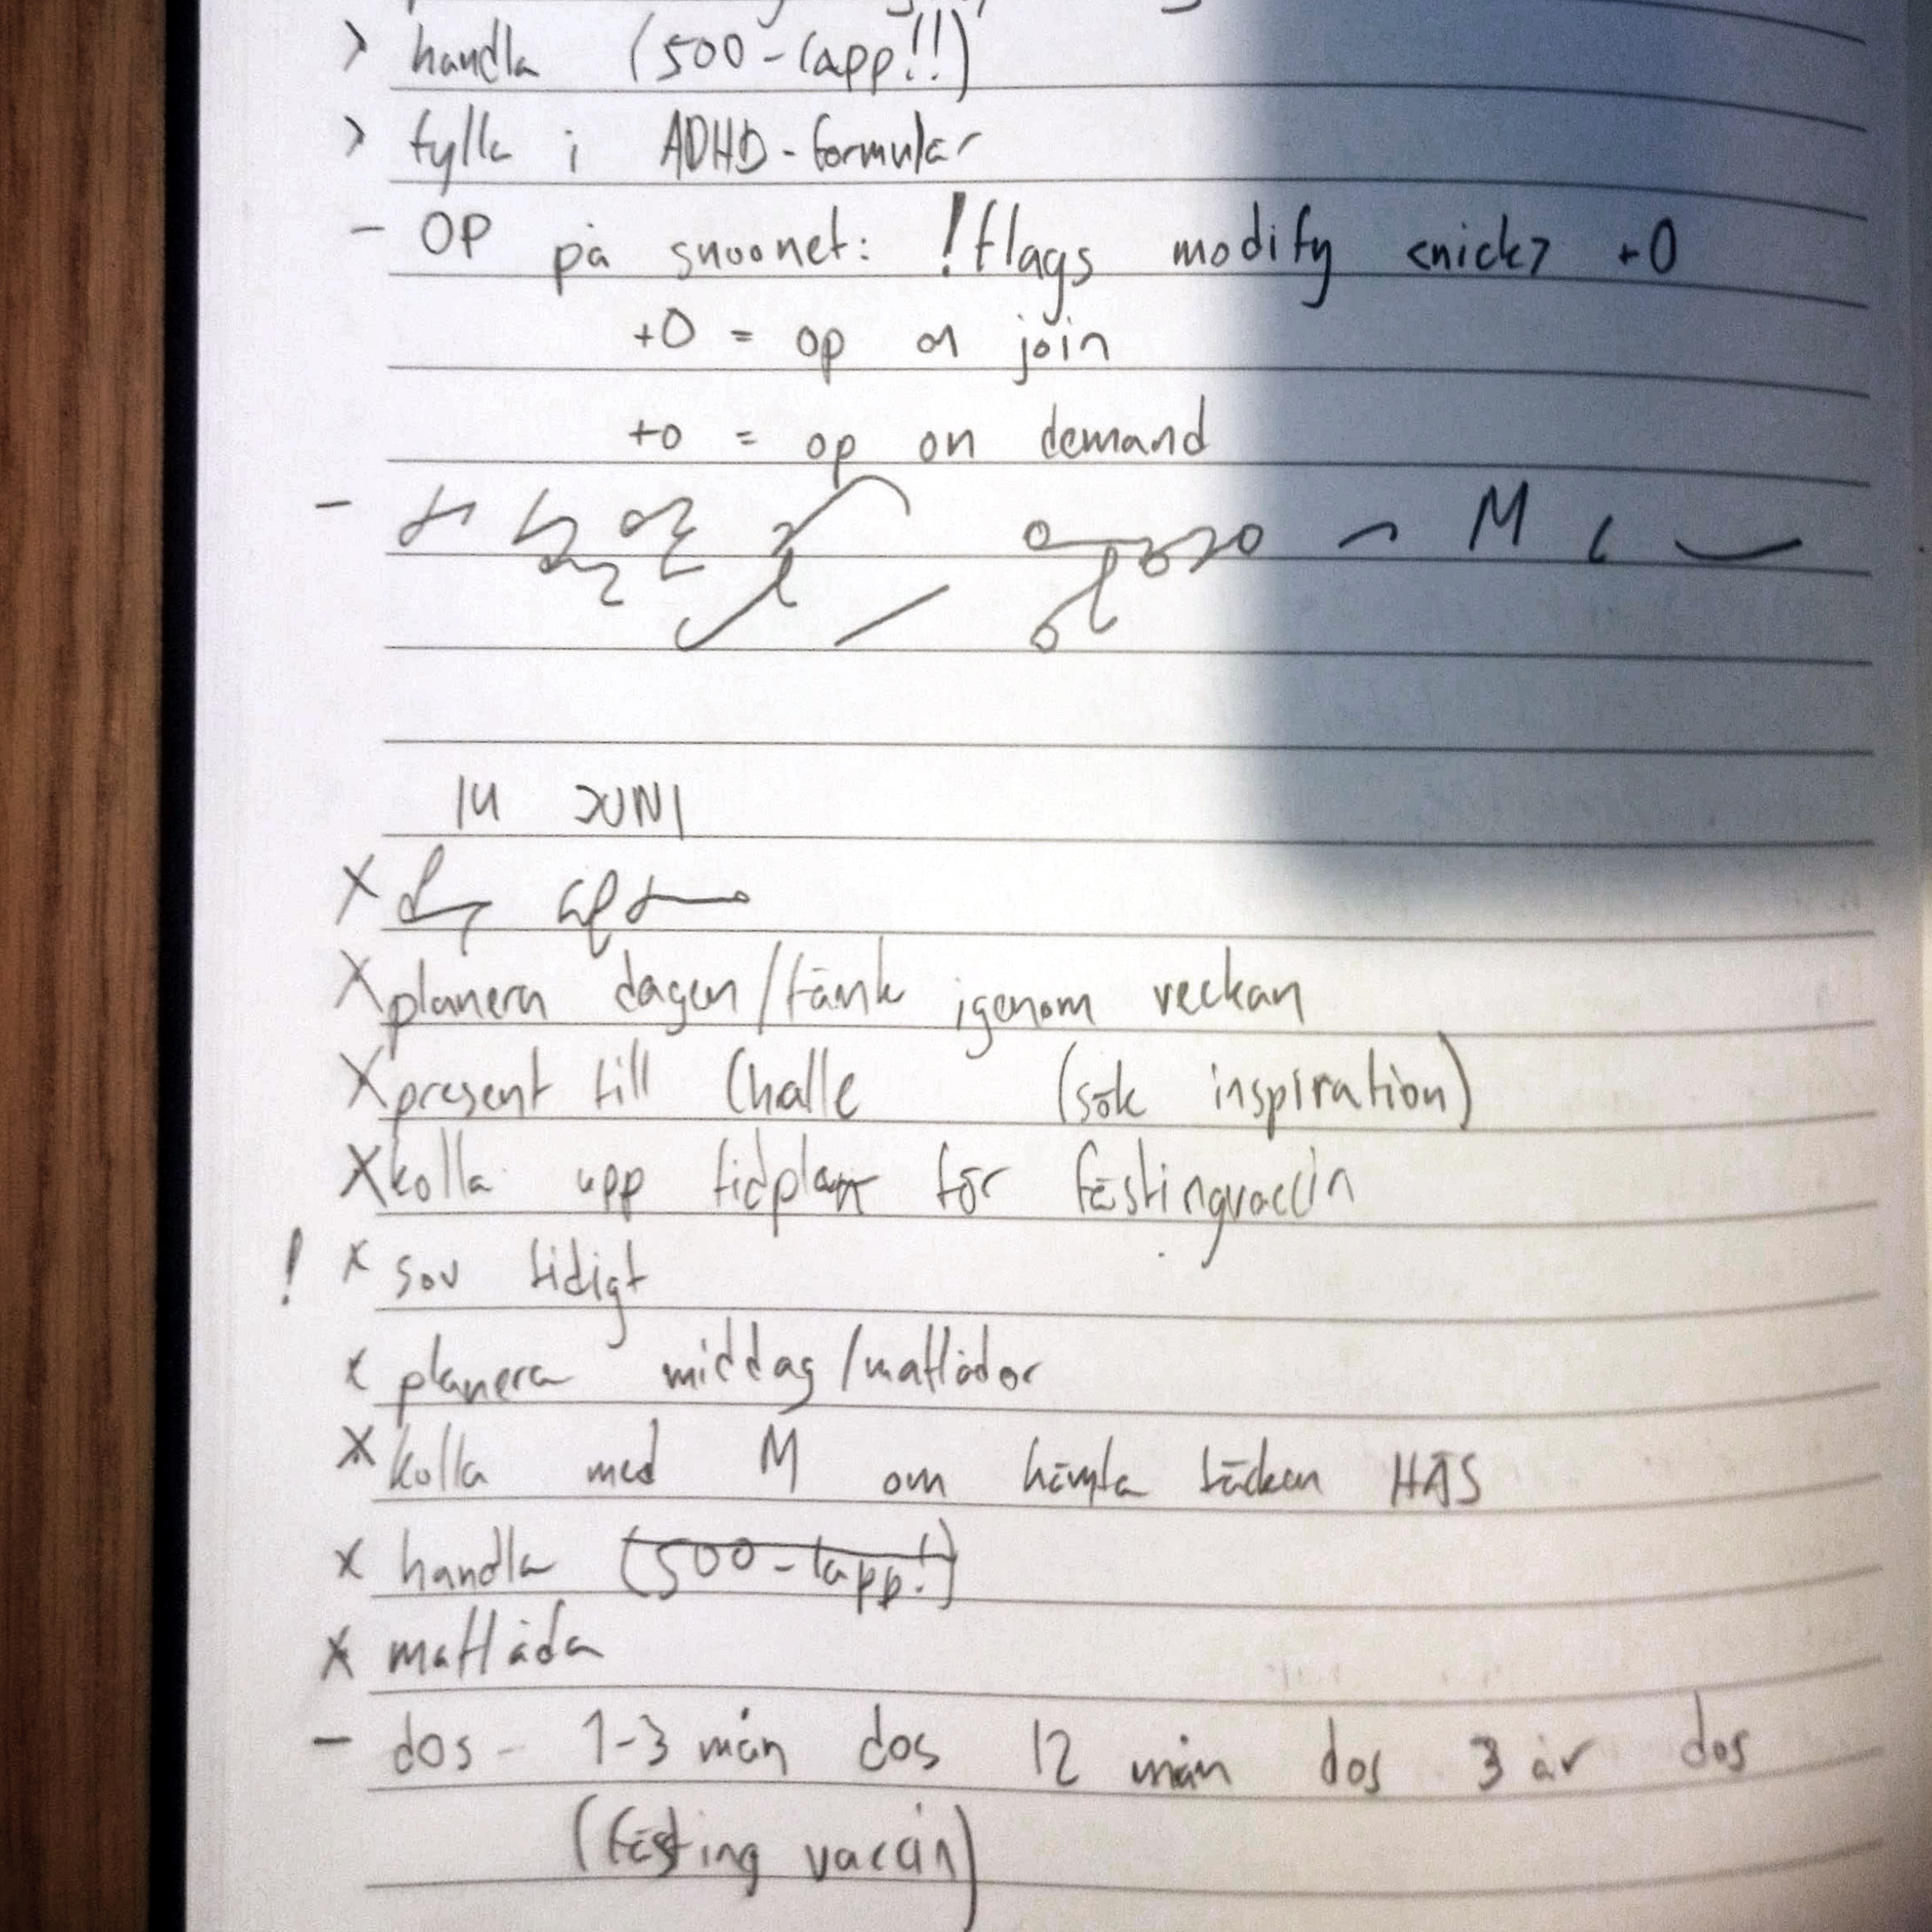 > handla (500-lapp!!)
> fylla i ADHD-formulär
- OP på snoonet: !flags modify <nick> +O
+O = op on join
+o = op on demand
- M
14 JUNI
X
X planera dagen/tänk igenom veckan
X present till Challe (sök inspiration)
X kolla upp tidplan för fästingvaccin
! x sov tidigt
x planera middag/matlådor
x kolla med M om hämta täcken HÄS
x handla (500-lapp!)
x matlåda
- dos - 1-3 mån dos 12 mån dos 3 år dos
(fästing vaccin)